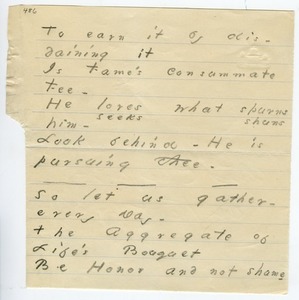 486
To earn it by dis-
daining it
Is Fame's consummate
Fee -
He loves what spurns
him - seeks shuns
Look behind - He is
pursuing thee.
So let us gather -
every Day -
the Aggregate of
Life's Bouquet
Be Honor and not shame